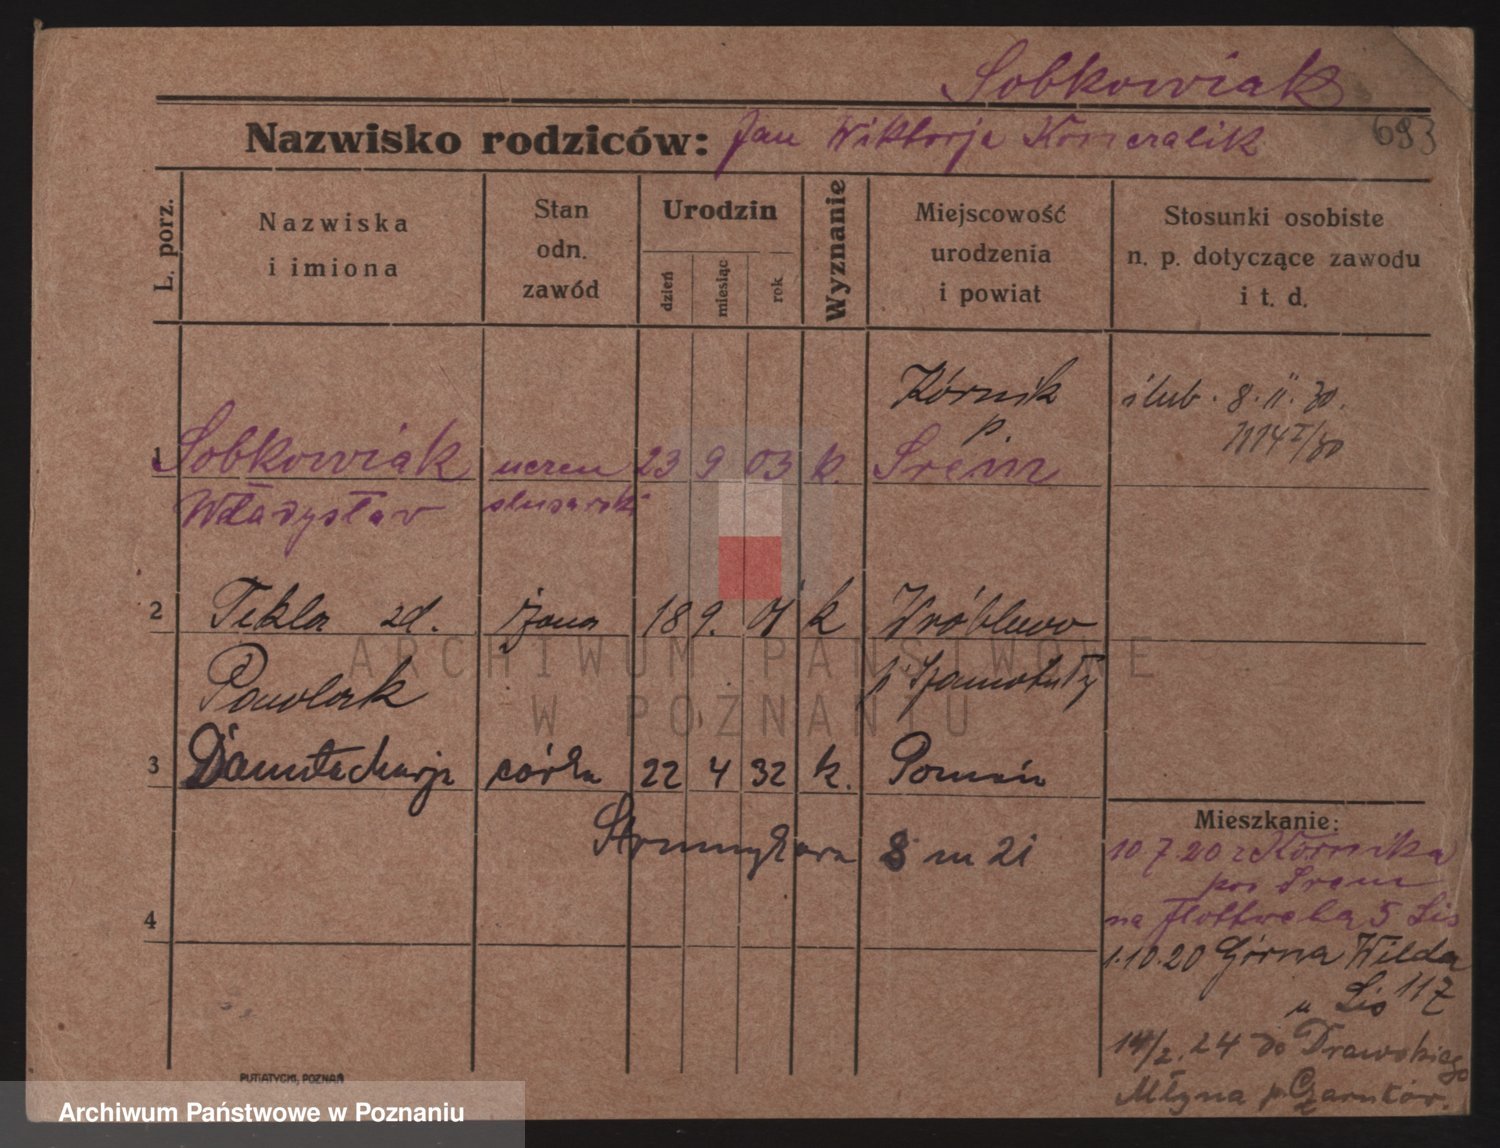 Sobkowiak
Nazwisko rodziców: Jan Wiktorja
693
L. porz.
Nazwiska
i imiona
Stan
odn.
zawód
Urodzin
dzień
miesiąc
rok
Wyznanie
Miejscowość
urodzenia
i powiat
Stosunki osobiste
n. p. dotyczące zawodu
i t. d.
Kórnik
p.
ślub. 8. II. 30.
1 Sobkowiak uczeń 23 9 03 k. Śrem
Władysław ślusarski
2 Tekla zd. żona 18 9. 01 k Wróblewo
Pawolak p. Szamotuły
3 Danuta Marja córka 22 4 32 k. Poznań
Strumykowa 8 m 21
4
Mieszkanie:
10.7.20 z Kórnika
pow Śrem
na Flottwela 5 Lis
1.10.20 Górna Wilda
u Lis 117
14/2.24 do Drawskiego
Młyna p. Czarnków.
PUTIATYCKI, POZNAŃ
ARCHIWUM PAŃSTWOWE
W POZNANIU
Archiwum Państwowe w Poznaniu